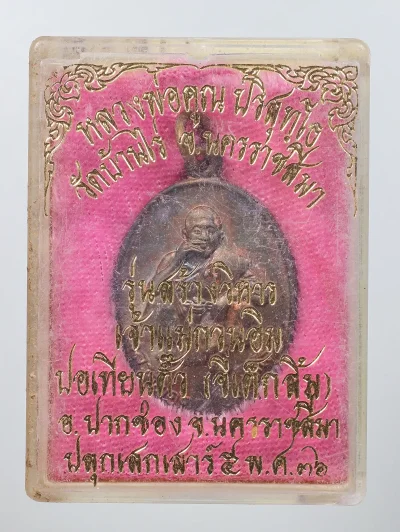 หลวงพ่อคูณ ปริสุทฺโธ
วัดบ้านไร่ จ.นครราชสีมา
รุ่นสร้างวิหาร
เจ้าแม่กวนอิม
ปอเทียนตั๊ว (ซีเต็กลิ้ม)
อ.ปากช่อง จ.นครราชสีมา
ปลุกเสกเสาร์ ๕ พ.ศ.๓๖